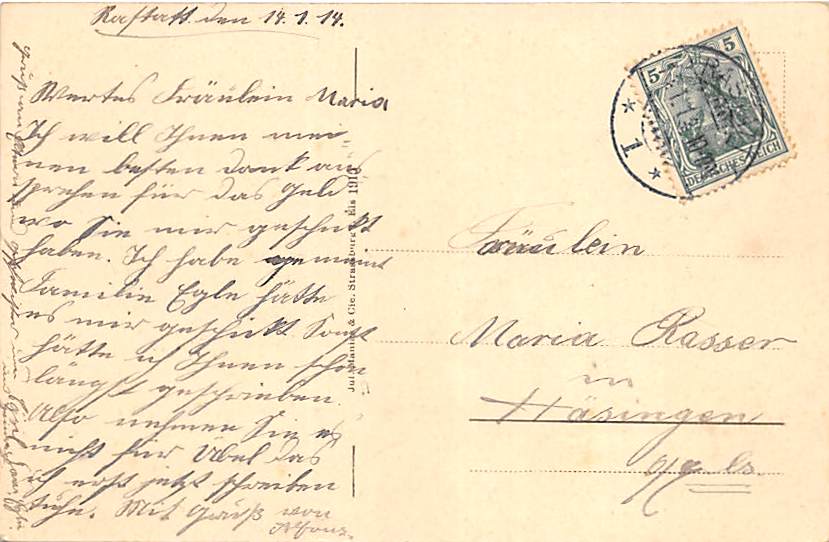 Rastatt den 14.1.14.
Wertes Fräulein Maria
Ich will Ihnen mei-
nen besten Dank aus
sprehen für das Geld
wo Sie mir geschikt
haben. Ich habe gemeint
Familie Egle hätte
es mir geschikt Sonst
hätte ich Ihnen schon
längst geschrieben.
Also nehmen Sie es
nicht für Übel das
ich erst jetzt schreiben
tuhe. Mit Gruß von
Alfons.
Gruß an
Jul. Manias & Cie. Strassburg i. Els 1913
5 5
DEUTSCHES REICH
RASTATT
* 1 *
Fräulein
Maria Rasser
in
Häsingen
o/ Els.